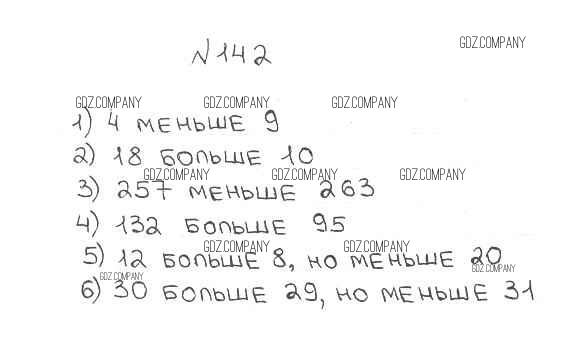 №142
GDZ.COMPANY
GDZ.COMPANY GDZ.COMPANY GDZ.COMPANY
1) 4 меньше 9
2) 18 больше 10
GDZ.COMPANY GDZ.COMPANY GDZ.COMPANY
3) 257 меньше 263
4) 132 больше 95
GDZ.COMPANY GDZ.COMPANY
5) 12 больше 8, но меньше 20
GDZ.COMPANY GDZ.COMPANY
6) 30 больше 29, но меньше 31